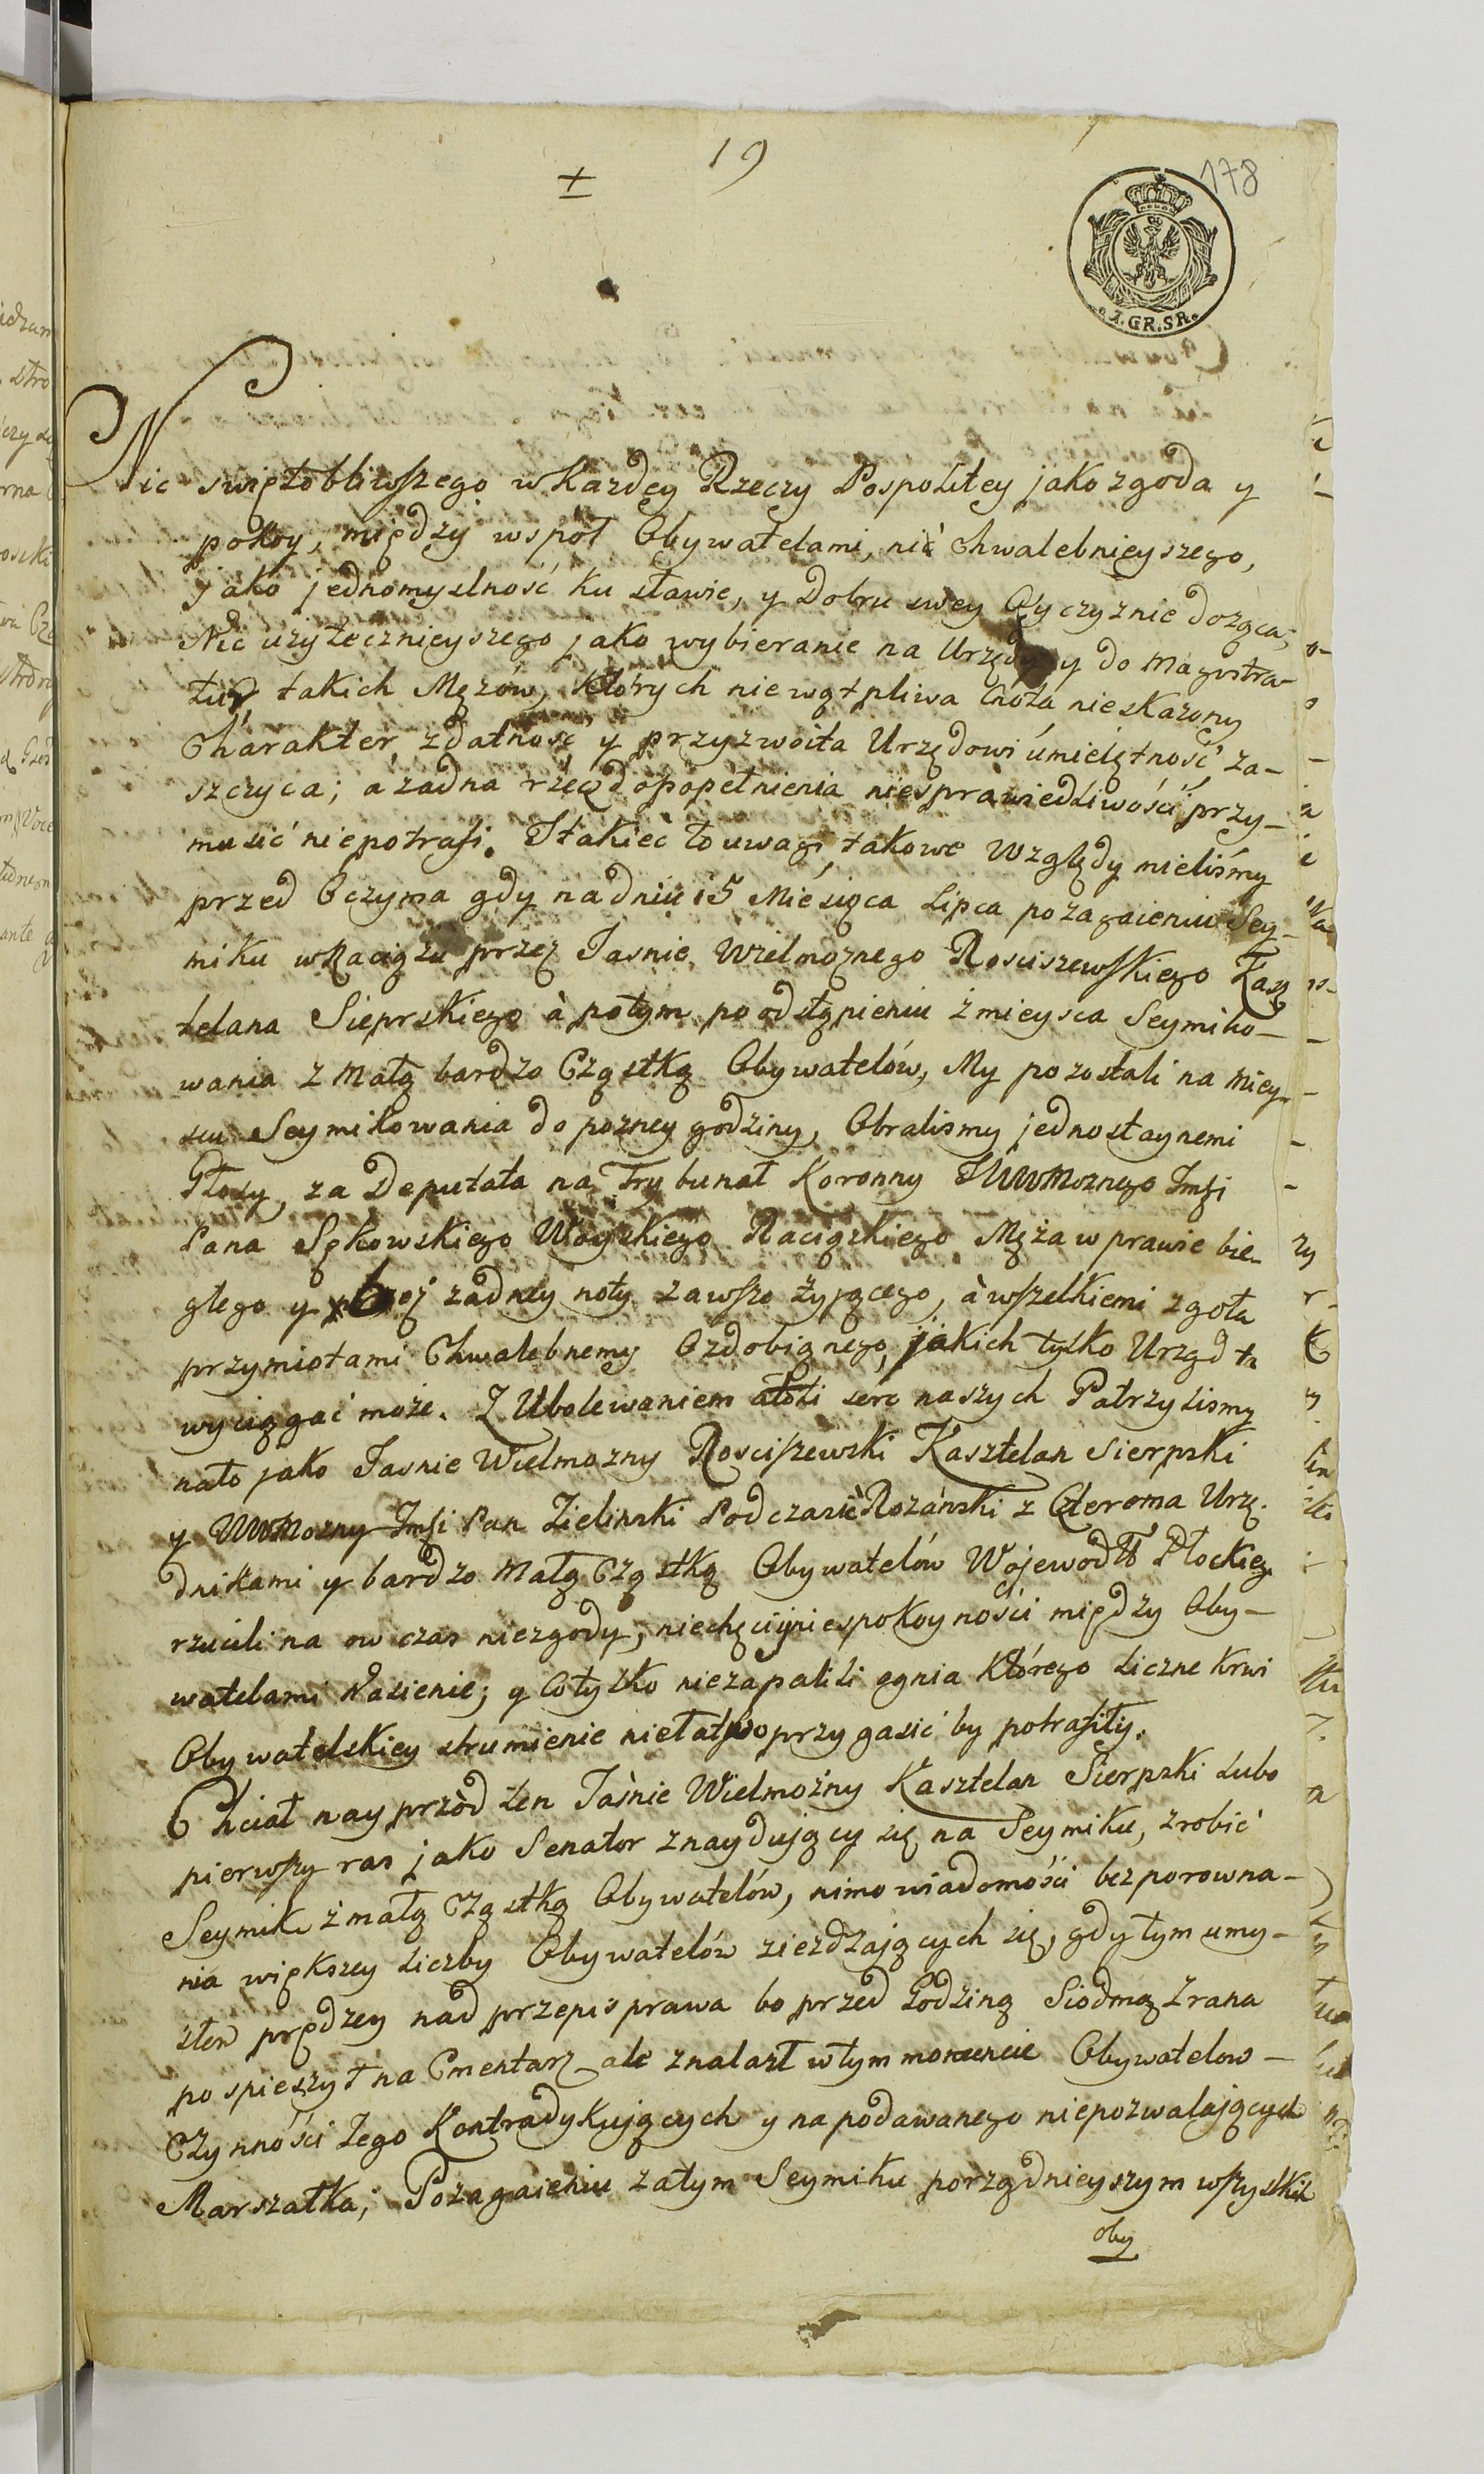 19
178
+
1.GR.SR.
Nic swiętobliwszego w Kazdey Rzeczy Pospolitey jako zgoda y
pokoy, między wspoł Obywatelami, nic Chwalebnieyszego,
jako jednomyslność ku sławie, y Dobru swey Oyczyznie dozgca;
Nic uzytecznieyszego jako wybieranie na Urzędy y do Magistra-
tur takich Męzow, których niewątpliwa Cnota nieskazony
Charakter zdatność y przyzwoita Urzędowi umieiętność za-
szczyca; a zadna rzecz do popełnienia niesprawiedliwości przy-
musić niepotrafi. Itakieć to uwagi, takowe Względy mieliśmy
przed Oczyma gdy na dniu 15 Miesiąca Lipca po zagaieniu Sey-
miku w Raciążu przez Jasnie Wielmoznego Rosciszewskiego Kasz
telana Sieprskiego à potym po odstąpieniu z mieysca Seymiko-
wania z Małą bardzo Cząstką Obywatelów, My pozostali na miey-
scu Seymikowania do pozney godziny, Obralismy jednostaynemi
Głosy, za Deputata na Trybunał Koronny JWWMoznego Imsi
Pana Sękowskiego Woyskiego Raciązkiego Męża w prawie bie-
głego y bez zadney noty zawszo żyjącego, à wszelkiemi zgoła
przymiotami Chwalebnemy Ozdobionego, jakich tylko Urząd tn
wyciągać może. Z Ubolewaniem atoli serc naszych Patrzylismy
nato jako Jasnie Wielmozny Rosciszewski Kasztelan Sierpski
y WWMozny Imsi Pan Zielinski Podczasié Rozański z Czteroma Urzę-
dnikami y bardzo Małą Cząstką Obywatelów Wojewodtt Płockieg
rzucili na ow czas niezgody, niechęci y niespokoyności między Oby-
watelami Nasienie; y Cotylko niezapalili ognia którego Liczne krwi
Obywatelskiey strumienie niełatwo przygasić by potrafiły.
Chciał nayprzòd ten Jaśnie Wielmożny Kasztelan Sierpski lubo
pierwszy ras jako Senator znaydujący się na Seymiku, zrobić
Seymik z małą Cząstką Obywatelów, nimo wiadomości bez porowna-
nia większey Liczby Obywatelów ziezdzających się, gdy tym umy-
słem prędzey nad przepis prawa bo przed Godziną Siodmą Zrana
pospieszył na Cmentarz ale znalazł w tym momencie Obywatelow-
Czynności Jego Kontradykujących y na podawanego niepozwalających
Marszałka; Pozagaieniu zatym Seymiku porządnieyszym wszystkich
oby